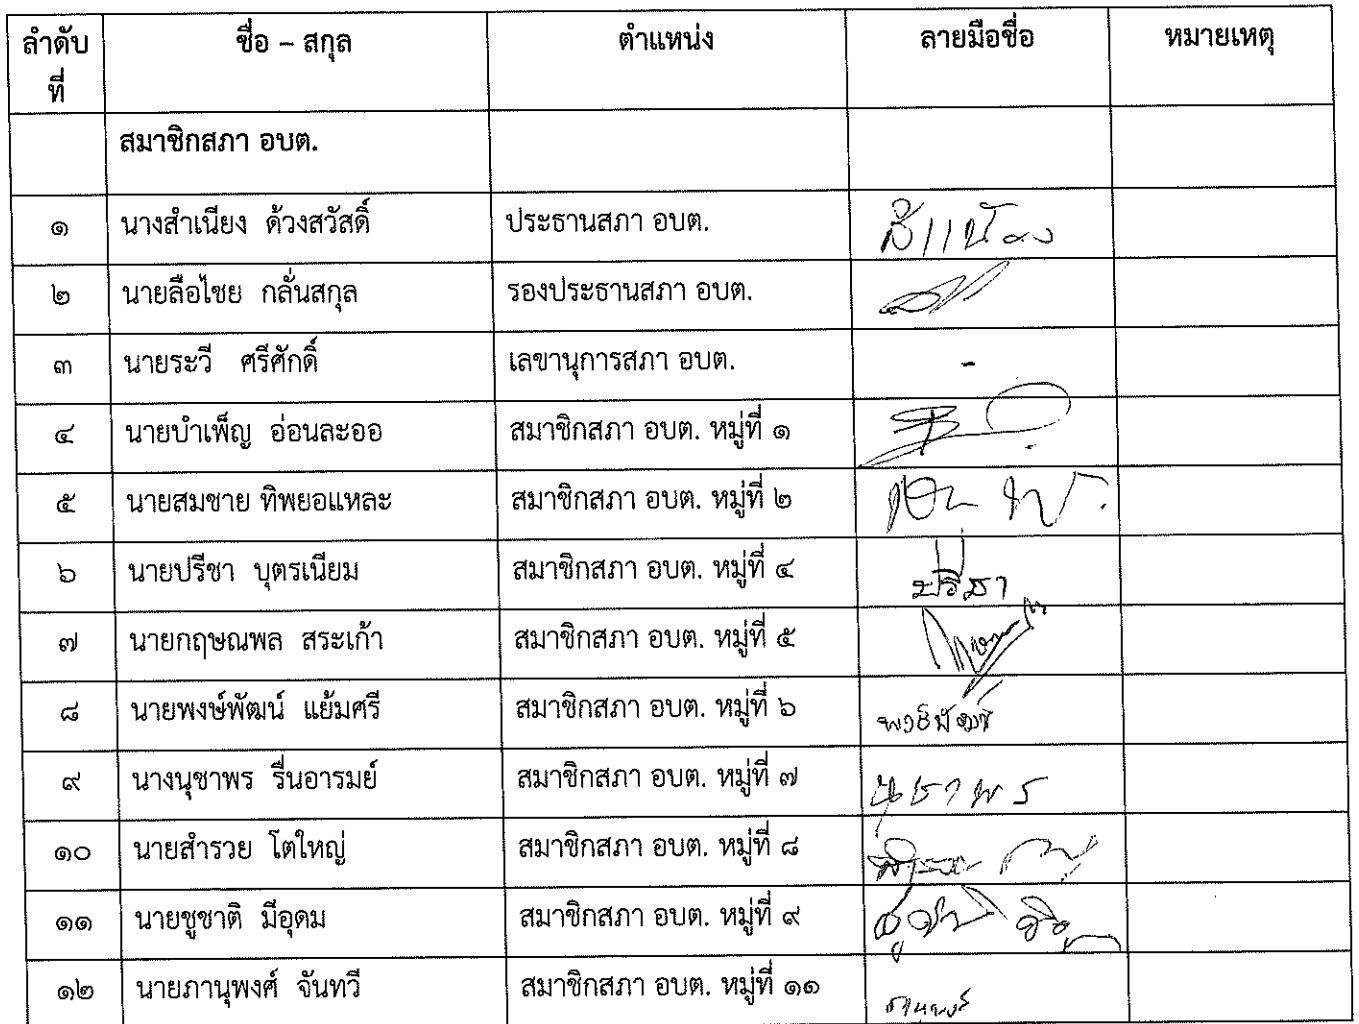 ลำดับ ชื่อ – สกุล ตำแหน่ง ลายมือชื่อ หมายเหตุ
ที่
สมาชิกสภา อบต.
๑ นางสำเนียง ด้วงสวัสดิ์ ประธานสภา อบต.
๒ นายลือไชย กลั่นสกุล รองประธานสภา อบต.
๓ นายระวี ศรีศักดิ์ เลขานุการสภา อบต. -
๔ นายบำเพ็ญ อ่อนละออ สมาชิกสภา อบต. หมู่ที่ ๑
๕ นายสมชาย ทิพยอแหละ สมาชิกสภา อบต. หมู่ที่ ๒
๖ นายปรีชา บุตรเนียม สมาชิกสภา อบต. หมู่ที่ ๔ ปรีชา
๗ นายกฤษณพล สระเก้า สมาชิกสภา อบต. หมู่ที่ ๕
๘ นายพงษ์พัฒน์ แย้มศรี สมาชิกสภา อบต. หมู่ที่ ๖ พงษ์พัฒน์
๙ นางนุชาพร รื่นอารมย์ สมาชิกสภา อบต. หมู่ที่ ๗ นุชาพร
๑๐ นายสำรวย โตใหญ่ สมาชิกสภา อบต. หมู่ที่ ๘
๑๑ นายชูชาติ มีอุดม สมาชิกสภา อบต. หมู่ที่ ๙
๑๒ นายภานุพงศ์ จันทวี สมาชิกสภา อบต. หมู่ที่ ๑๑ ภานุพงศ์